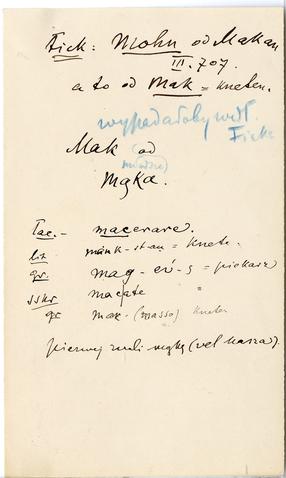 Fick: Mohn od Makan
III. 707.
a to od Mak = kneten.
wypadałoby wdł.
Ficke
Mak od
mąka.
Łac. - macerare.
lit mink-stau = knete.
gr. mag-eú-s = piekarz
sskr macate "
gr max- (masso) kneten
pierwej znali mąkę (vel kasza).